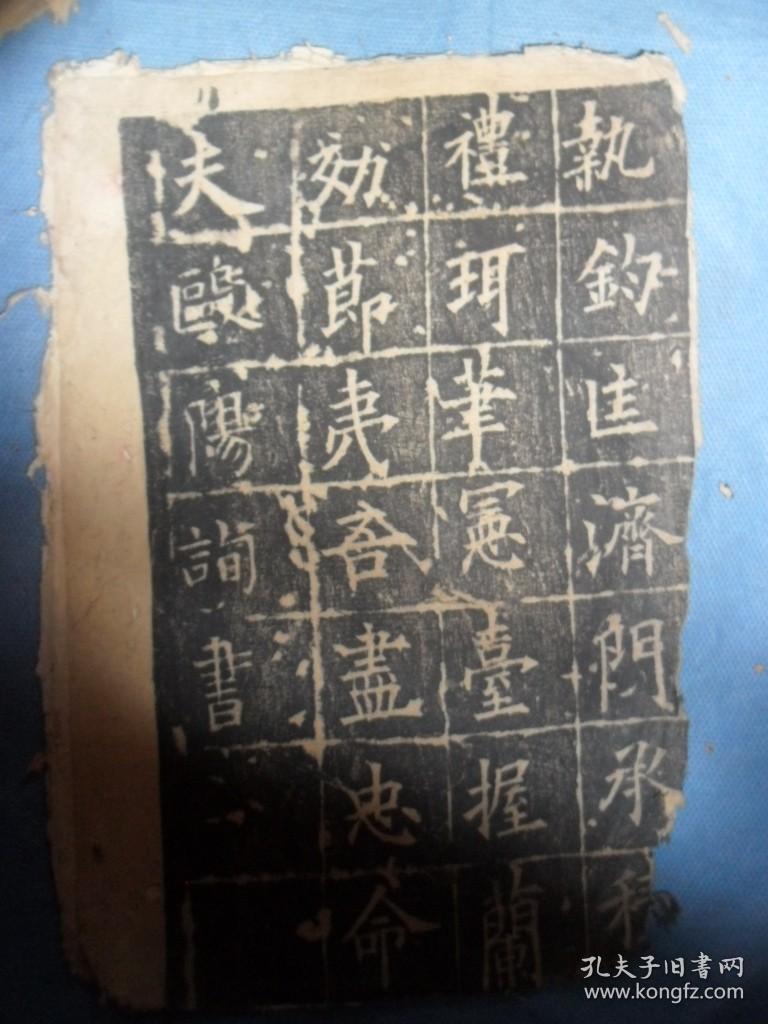 執鈞匡濟門承
禮珥華冕臺握蘭
効節夷吾盡忠命
夫歐陽詢書
孔夫子旧書网
www.kongfz.com